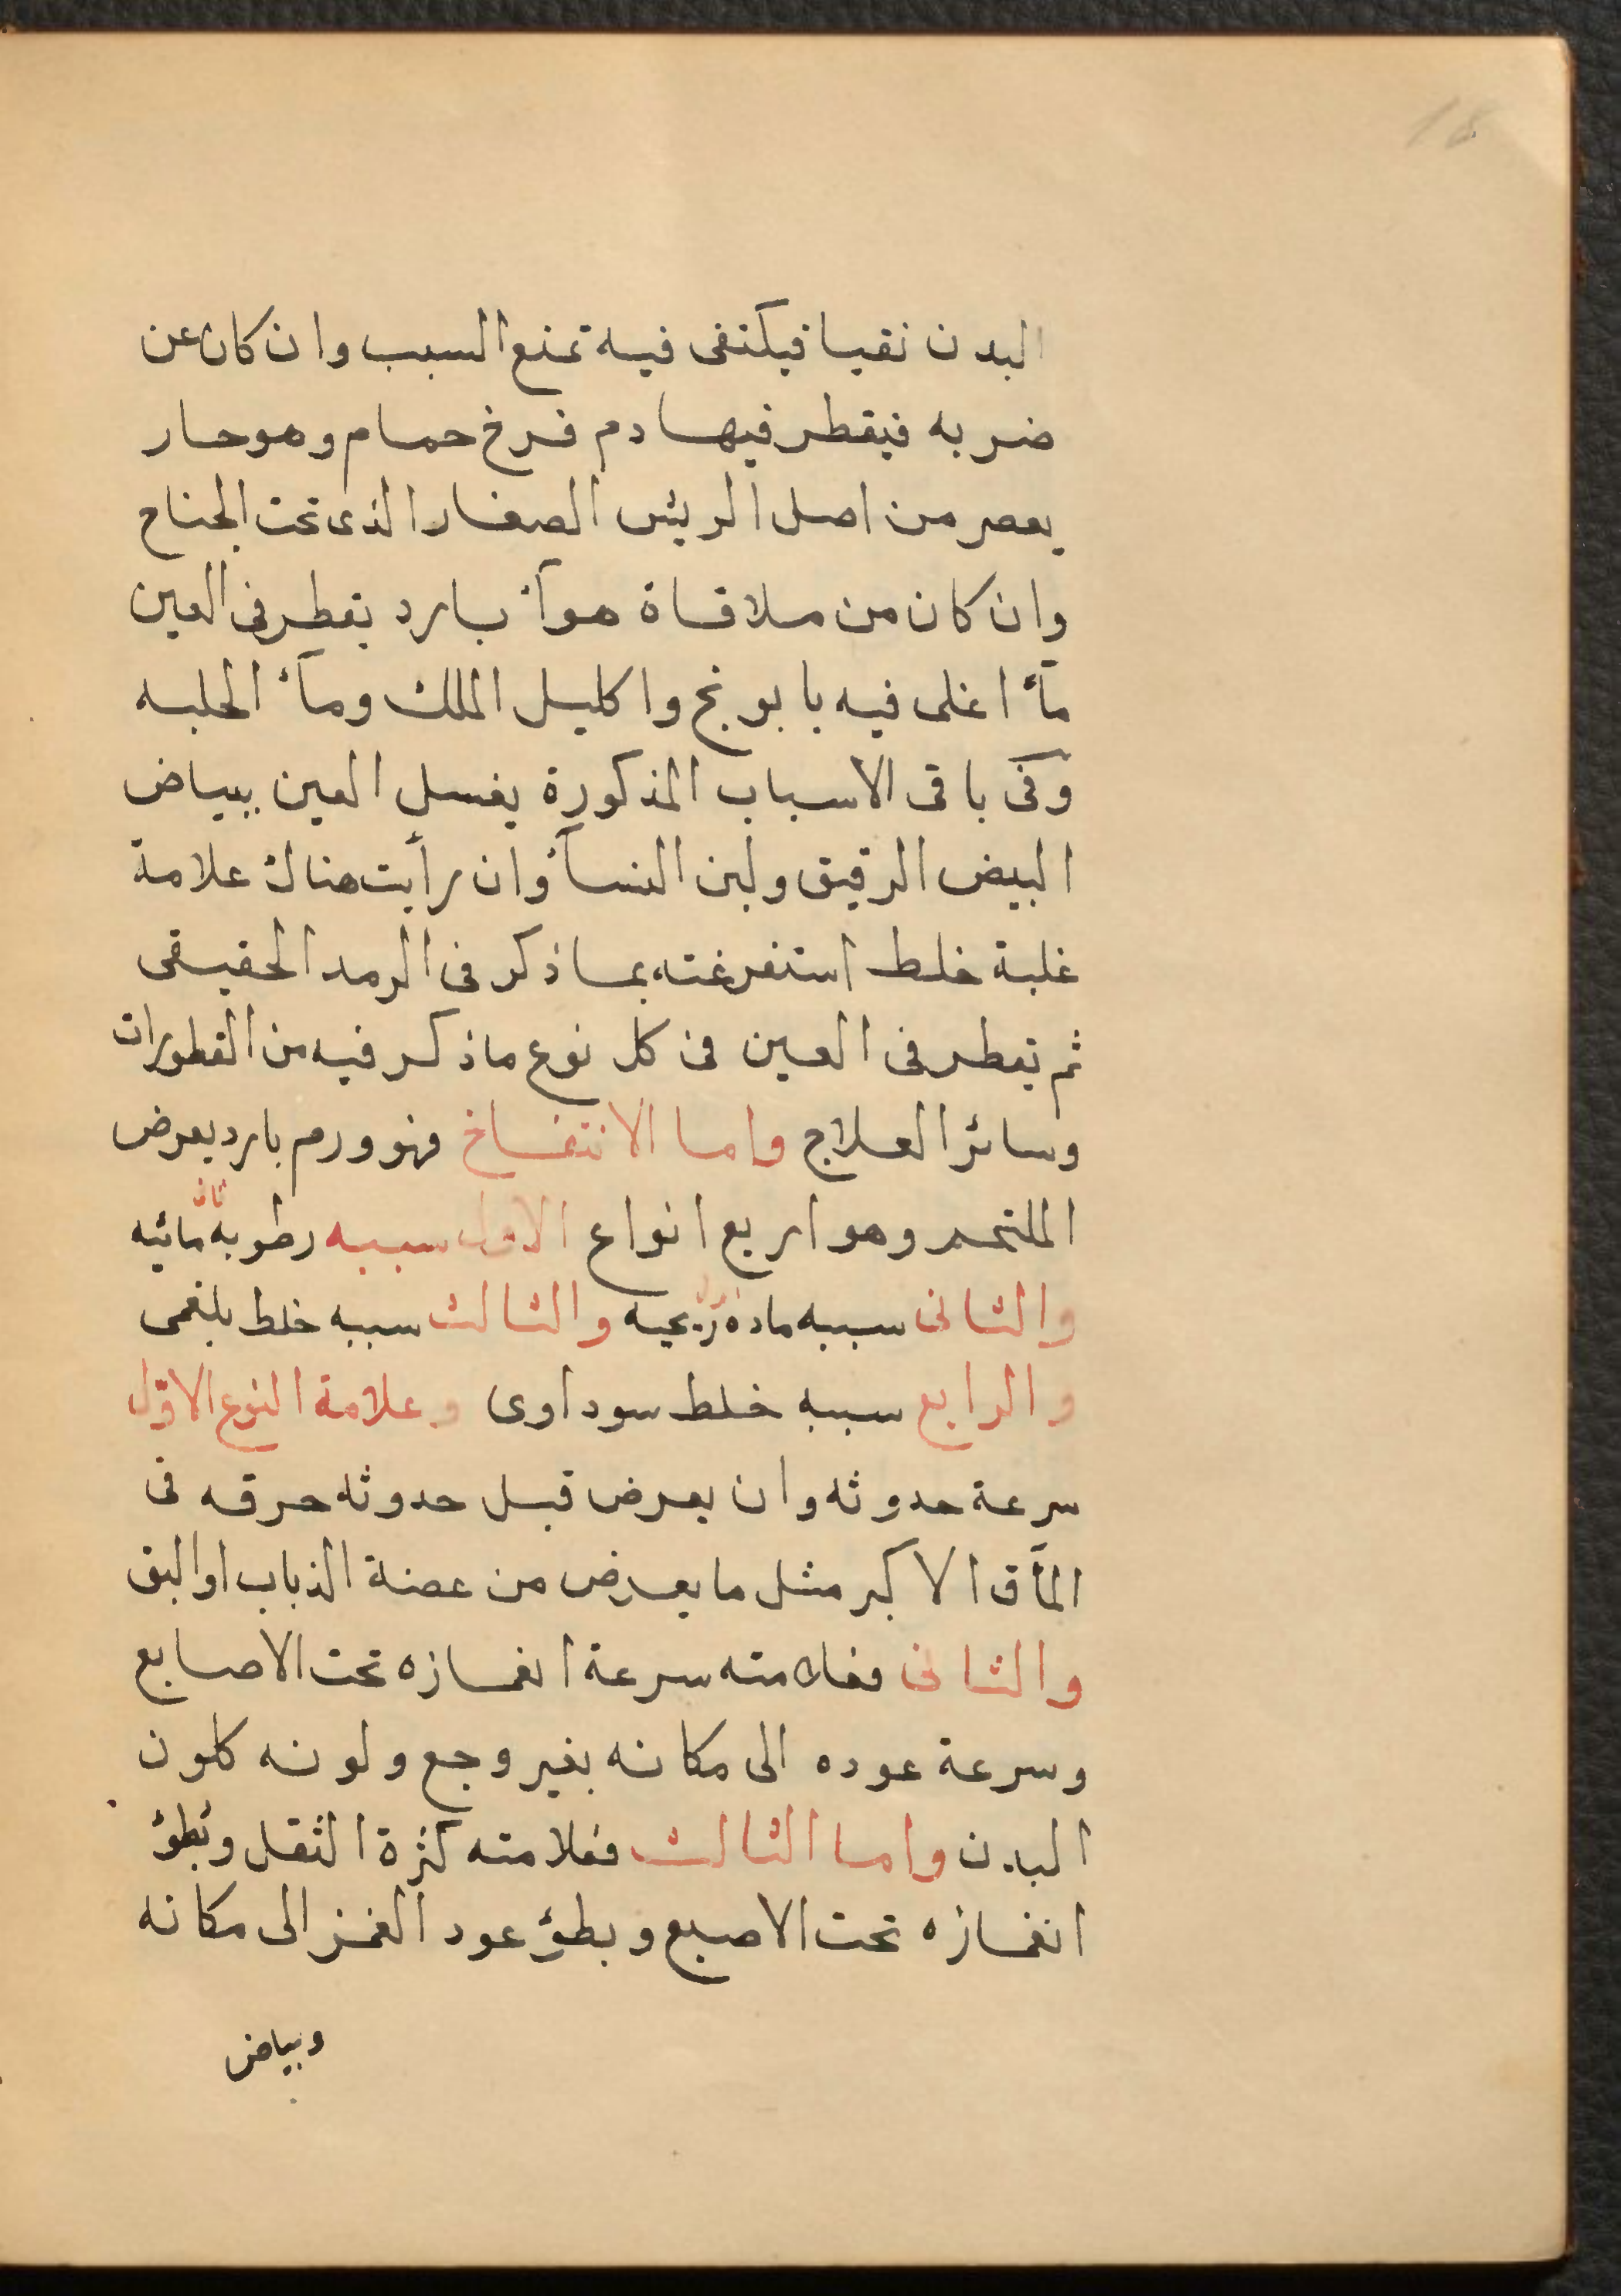 البدن نقيا فيكتفى فيه تمنع السبب وان كان عن
ضربه فيقطر فيها دم فرخ حمام وهو حار
يعصر من اصل الريش الصغار الذى تحت الجناح
وان كان من ملاقاة هوآء بارد يقطر فى العين
مآء اغلى فيه بابونج واكليل الملك ومآء الحلبه
وفى باقى الاسباب المذكورة يغسل العين ببياض
البيض الرقيق ولبن النسآء وان رأيت هناك علامة
غلبة خلط استفرغته بماذكر فى الرمد الحقيقى
ثم تقطر فى العين فى كل نوع ماذكر فيه من القطورات
وسائر العلاج واما الانتفاخ فهو ورم بارد يعرض
الملتحم وهو اربع انواع الاول سببه رطوبة مائيه
والثانى سببه ماده ريحيه والثالث سببه خلط بلغمى
والرابع سببه خلط سوداوى وعلامة النوع الاوّل
سرعة حدوثه وان يعرض قبل حدوثه حرقه فى
المآق الاكبر مثل ما يعرض من عضة الذباب او البق
والثانى فعلامته سرعة انغمازه تحت الاصابع
وسرعة عوده الى مكانه بغير وجع ولونه كلون
البدن واما الثالث فعلامته كثرة الثقل وبُطؤ
انغمازه تحت الاصبع وبطؤ عود الغمز الى مكانه
وبياض